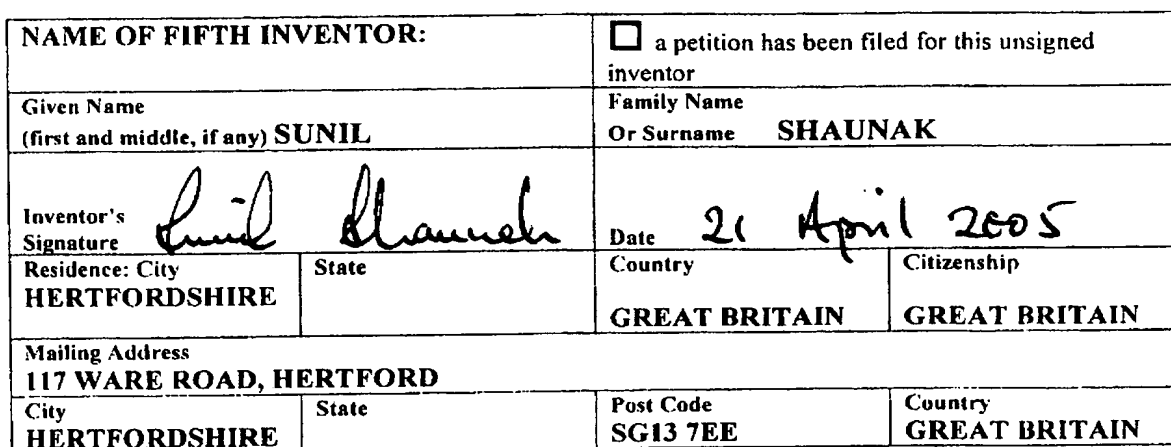 NAME OF FIFTH INVENTOR:
☐ a petition has been filed for this unsigned
inventor
Given Name
(first and middle, if any) SUNIL
Family Name
Or Surname SHAUNAK
Inventor's
Signature Sunil Shaunak
Date 21 April 2005
Residence: City
HERTFORDSHIRE
State
Country
GREAT BRITAIN
Citizenship
GREAT BRITAIN
Mailing Address
117 WARE ROAD, HERTFORD
City
HERTFORDSHIRE
State
Post Code
SG13 7EE
Country
GREAT BRITAIN